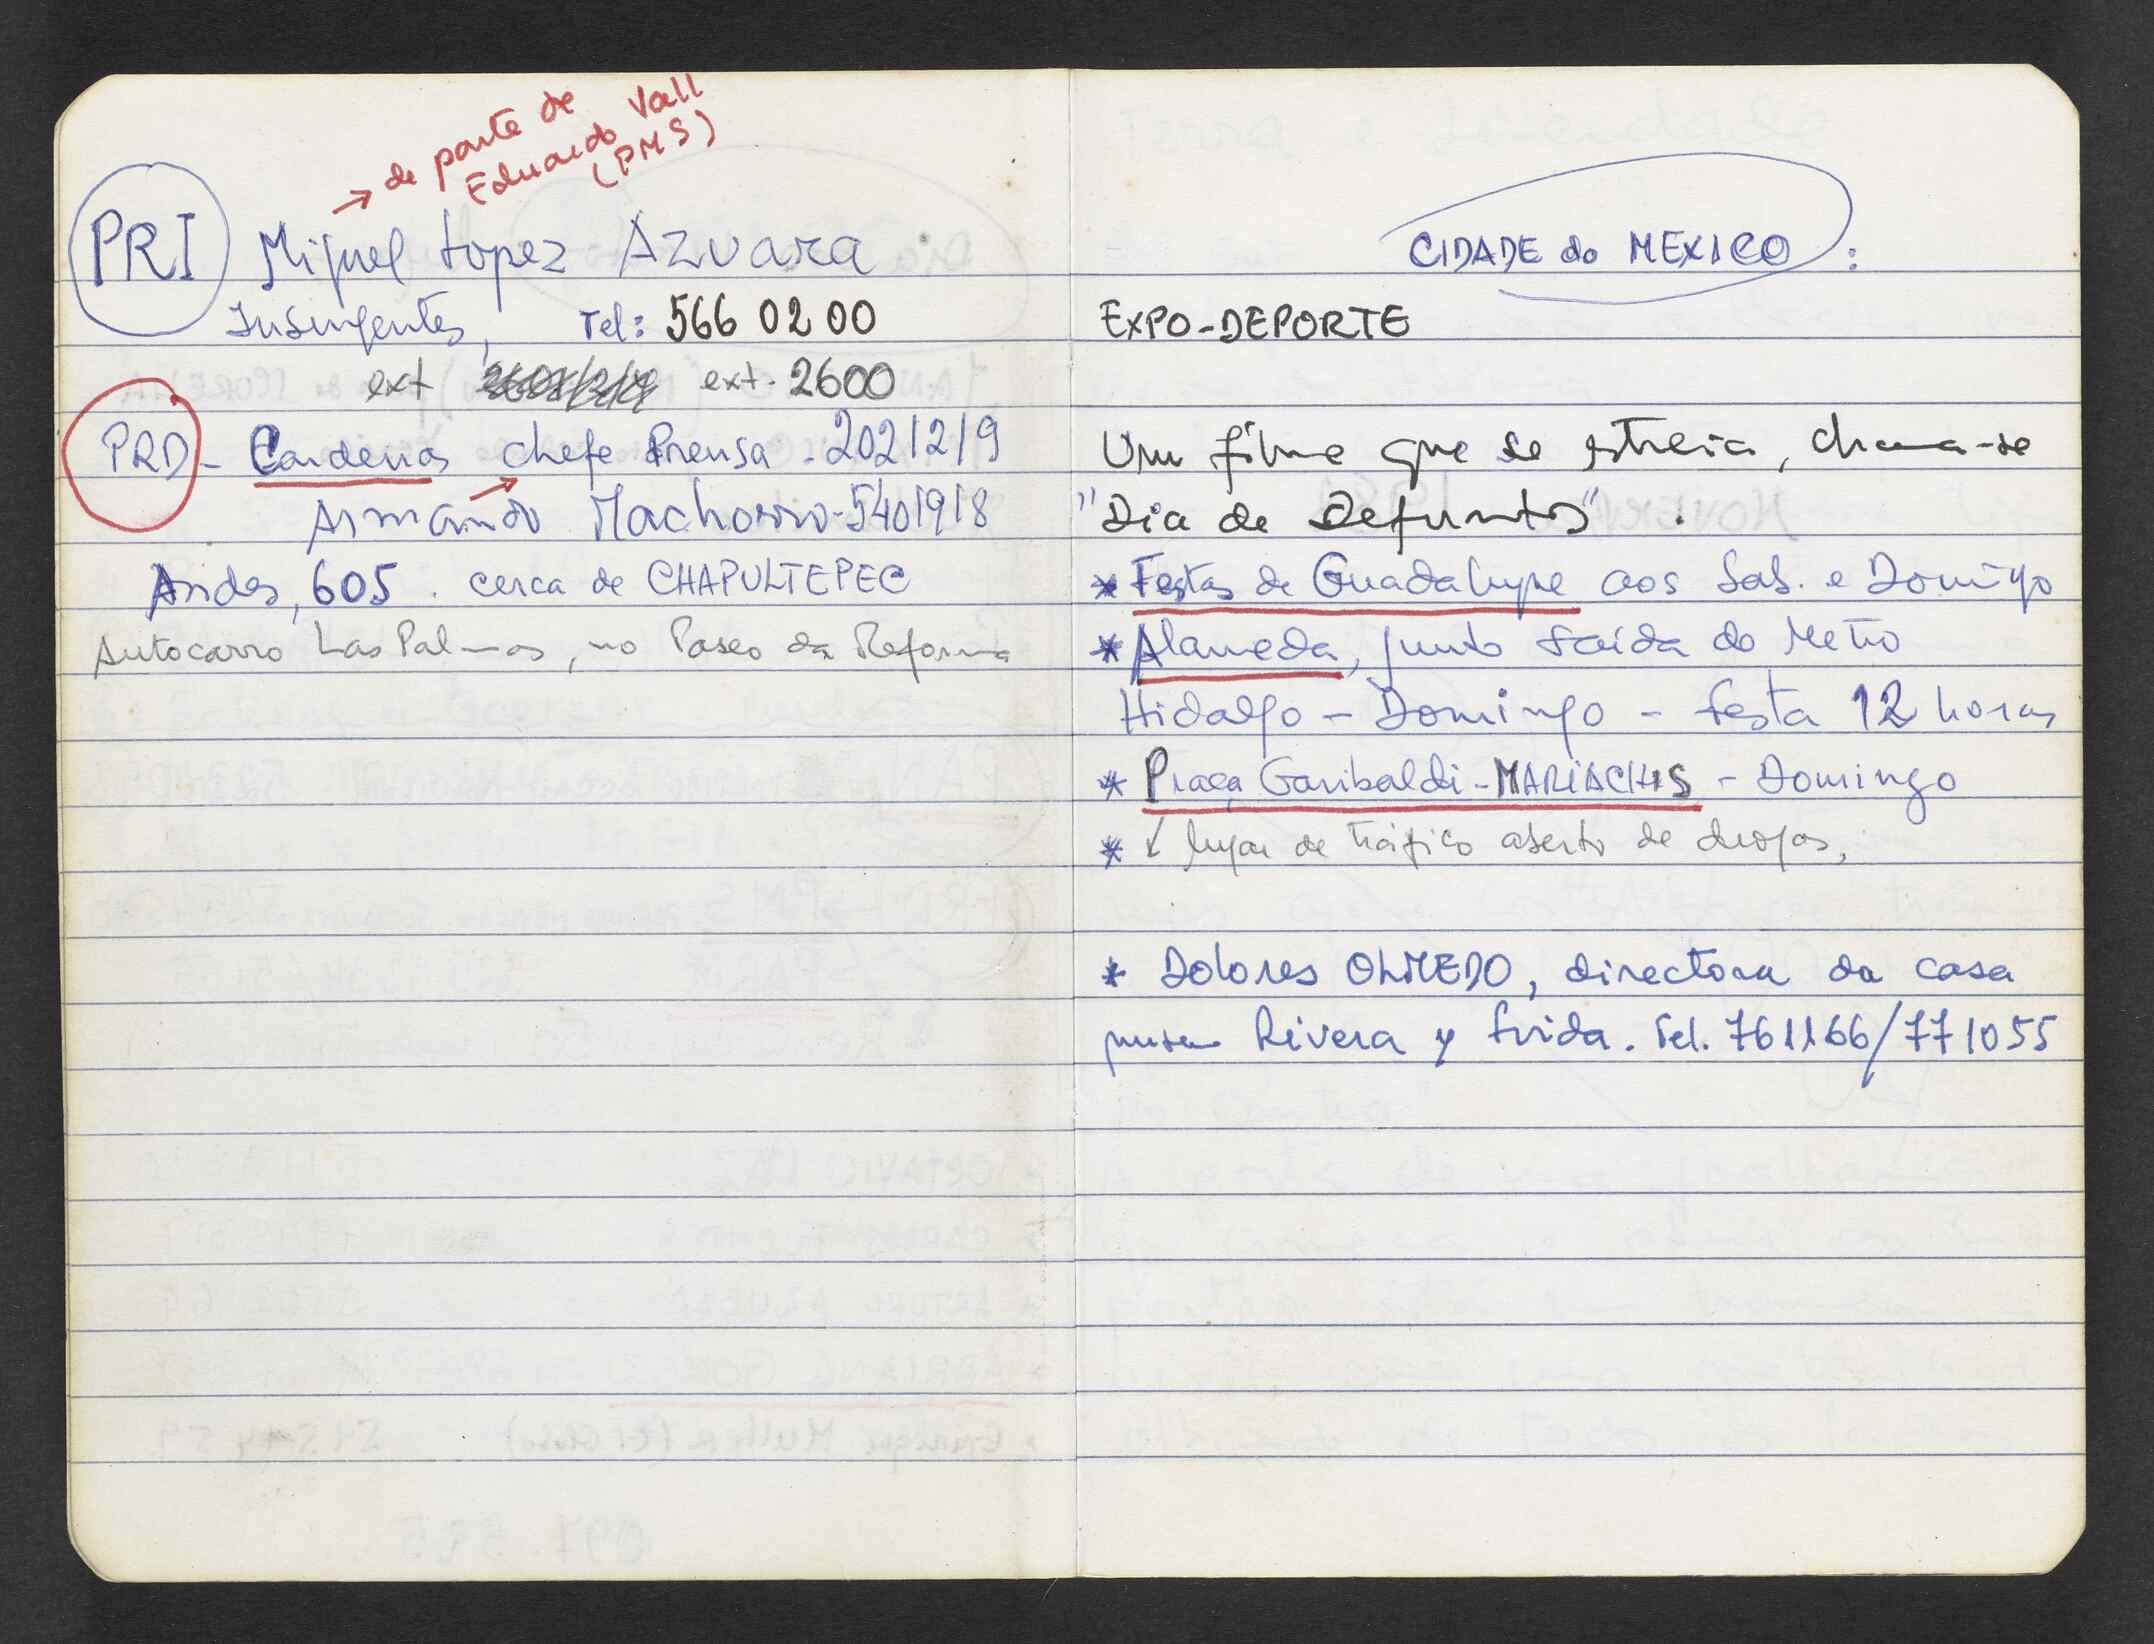 → de parte de
Eduardo Vall
(PMS)
PRI Miguel Lopez Azuara
Insurgentes, Tel: 566 02 00
ext ext. 2600
PRD - Cardenas → chefe Prensa - 202/2/9
Armando Machorro - 540/9/8
Andes, 605. cerca de CHAPULTEPEC
Autocarro Las Palmas, no Paseo da Reforma
CIDADE do MEXICO :
EXPO-DEPORTE
Um filme que se estreia, chama-se
"Dia de Defuntos".
* Festas de Guadalupe aos Sab. e Domingo
* Alameda, junto saída do Metro
Hidalgo - Domingo - festa 12 horas
* Praça Garibaldi - MARIACHIS - Domingo
* ↓ lugar de tráfico aberto de drogas,
* Dolores OLMEDO, directora da casa
museu Rivera y Frida. Tel. 761166/771055